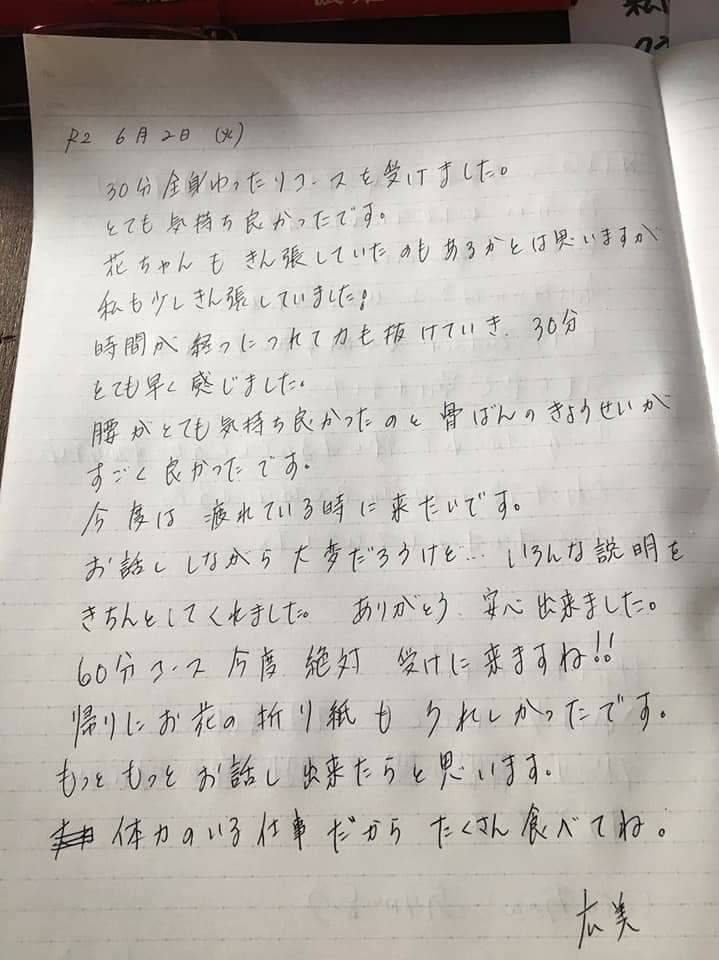 R2 6月2日(火)
30分全身ゆったりコースを受けました。
とても気持ち良かったです。
花ちゃんもきん張していたのもあるかとは思いますが
私も少しきん張していました!
時間が経つにつれて力も抜けていき、30分
とても早く感じました。
腰がとても気持ち良かったのと骨ばんのきょうせいが
すごく良かったです。
今度は疲れている時に来たいです。
お話ししながら大変だろうけど… いろんな説明を
きちんとしてくれました。ありがとう、安心出来ました。
60分コース今度絶対受けに来ますね!!
帰りにお花の折り紙もうれしかったです。
もっともっとお話し出来たらと思います。
体力のいる仕事だからたくさん食べてね。
広美